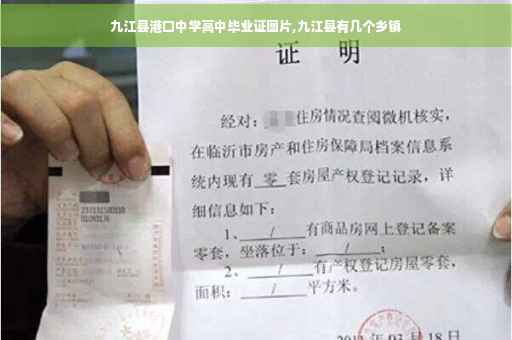 九江县港口中学高中毕业证图片,九江县有几个乡镇
证 明
经对: 住房情况查阅微机核实,
在临沂市房产和住房保障局档案信息系
统内现有 零 套房屋产权登记记录,详
细信息如下:
1、 / 有商品房网上登记备案
零套,坐落位于: / ;
2、 / 有产权登记房屋零套,
面积: / 平方米。
03 月 18 日